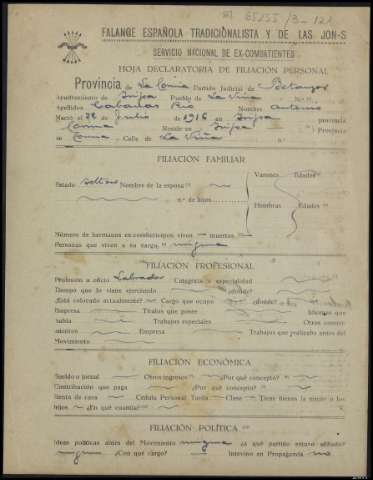 65255/3-121
FALANGE ESPAÑOLA TRADICIONALISTA Y DE LAS JON-S
SERVICIO NACIONAL DE EX-COMBATIENTES
HOJA DECLARATORIA DE FILIACION PERSONAL
Provincia de La Coruña Partido Judicial de Betanzos
Ayuntamiento de Irijoa Pueblo de La Viña N.º
Apellidos Cabañas Rio Nombre Antonio
Nació el 22 de Julio de 1916 en Irijoa provincia
Coruña Reside en Irijoa Provincia
Coruña Calle de La Viña
FILIACION FAMILIAR
Estado soltero Nombre de la esposa
n.º de hijos
Varones Edades
Hembras Edades
Número de hermanos ex-combatientes, vivos muertos
Personas que viven a su cargo, ninguna
FILIACION PROFESIONAL
Profesión u oficio Labrador Categoría o especialidad
Tiempo que lo viene ejerciendo
¿Está colocado actualmente? Cargo que ocupa ¿donde?
Empresa Títulos que posee Idiomas que
habla Trabajos especiales Otros conoci-
mientos Empresa Trabajos que realizaba antes del
Movimiento
FILIACION ECONÓMICA
Sueldo o jornal Otros ingresos ¿Por qué concepto?
Contribución que paga ¿Por qué concepto?
Renta de casa Cédula Personal Tarifa Clase Tiene bienes la mujer o los
hijos ¿En qué cuantía?
FILIACIÓN POLÍTICA
Ideas políticas antes del Movimiento ninguna ¿a qué partido estuvo afiliado?
ninguno ¿Con qué cargo? Intervino en Propaganda no